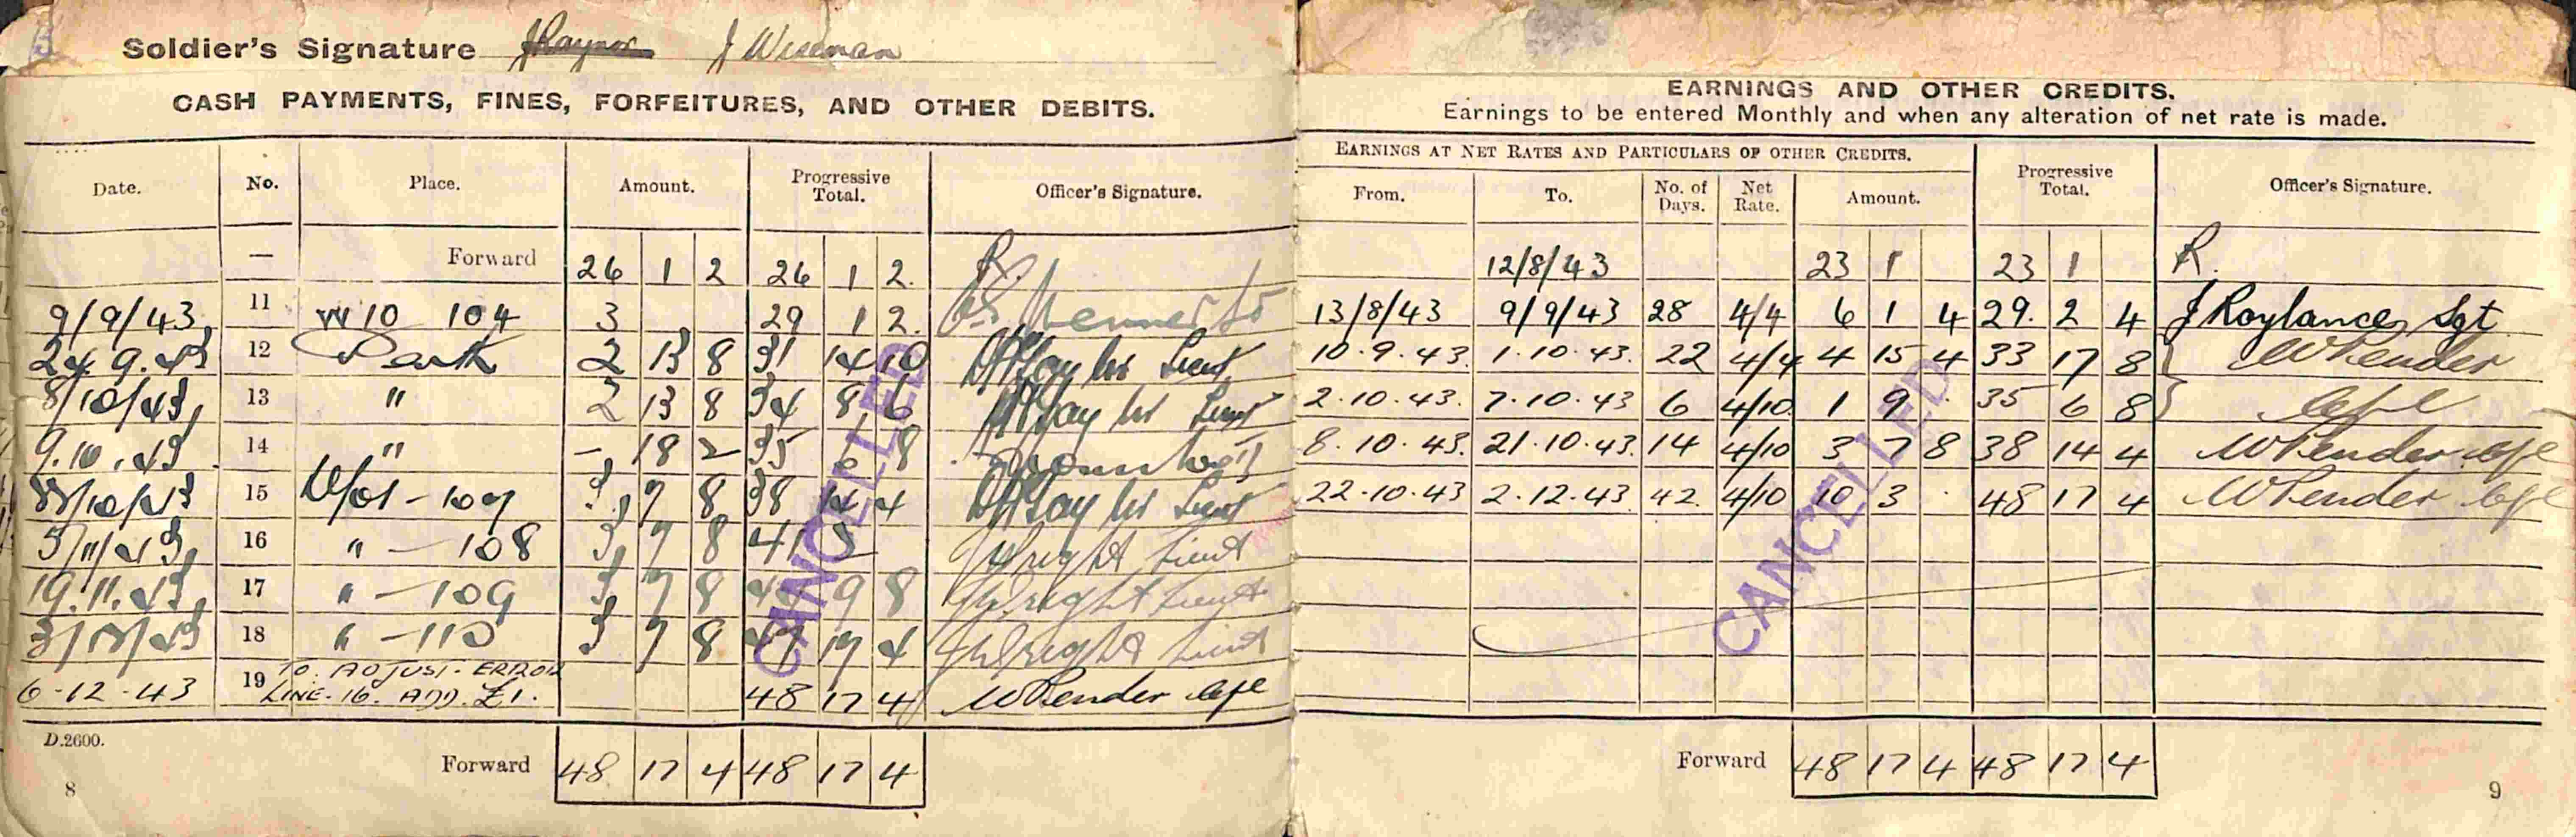 Soldier's Signature J Raynor J Wiseman
CASH PAYMENTS, FINES, FORFEITURES, AND OTHER DEBITS.
Date. No. Place. Amount. Progressive Total. Officer's Signature.
— Forward 26 1 2 26 1 2. R.
9/9/43 11 W10 104 3 29 1 2.
24.9.43 12 Perth 2 13 8 31 14 10 Lieut
8/10/43 13 " 2 13 8 34 8 6 Lieut
9.10.43 14 " — 18 2 35 6 8
15 3 7 8 38 14 4 Lieut
5/11/43 16 " — 108 3 7 8 41 2 Wright Lieut
19.11.43 17 " — 109 3 7 8 44 9 8 Wright Lieut
3/12/43 18 " — 110 3 7 8 47 17 4 Wright Lieut
6-12-43 19 TO. ADJUST. ERROR
LINE. 16. ADD. £1. 48 17 4 W Pender Cpl
CANCELLED
D.2600.
Forward 48 17 4 48 17 4
8
EARNINGS AND OTHER CREDITS.
Earnings to be entered Monthly and when any alteration of net rate is made.
EARNINGS AT NET RATES AND PARTICULARS OF OTHER CREDITS. Progressive Total. Officer's Signature.
From. To. No. of Days. Net Rate. Amount.
12/8/43 23 1 23 1 R.
13/8/43 9/9/43 28 4/4 6 1 4 29. 2 4 J Roylance Sgt
10.9.43. 1.10.43. 22 4/4 4 15 4 33 17 8 W Pender
2.10.43. 7.10.43 6 4/10. 1 9 . 35 6 8 Cpl
8.10.43. 21.10.43. 14 4/10 3 7 8 38 14 4 W Pender Cpl
22.10.43 2.12.43. 42. 4/10 10 3 . 48 17 4 W Pender Cpl
CANCELLED
Forward 48 17 4 48 17 4
9